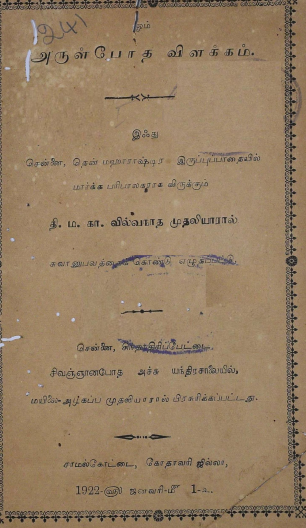 1241
அருள்போத விளக்கம்.
இஃது
சென்னை, தென் மஹாராஷ்டிர இருப்புப்பாதையில்
மார்க்க பரிபாலகராக விருக்கும்
தி. ம. கா. வில்வாரத முதலியாரால்
சுவானுபவத்தைக் கொண்டு எழுதப்பட்டு,
சென்னை,
சிவஞ்ஞானபோத அச்சு யந்திரசாலையில்,
மயிலை-அழகப்ப முதலியாரால் பிரசுரிக்கப்பட்டது.
சாமல்கோட்டை, கோதாவரி ஜில்லா,
1922-ணு ஜனவரி-மீ 1-உ.